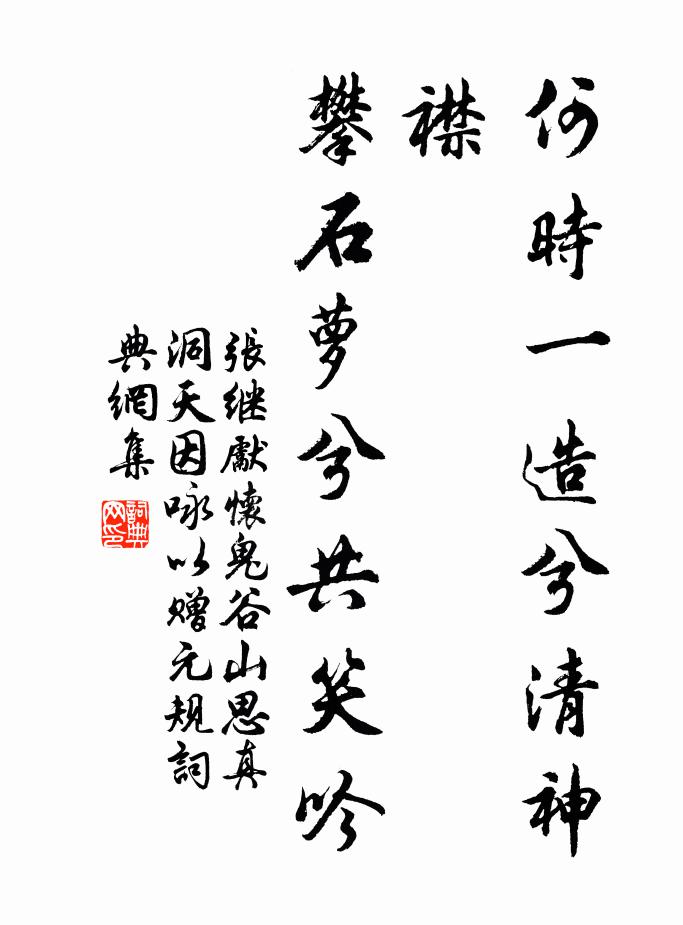 何時一造兮清神
襟
攀石夢兮共笑吟
張继獻懷鬼谷山思真
洞天因咏以赠元規詞
典網集
詞典
网印